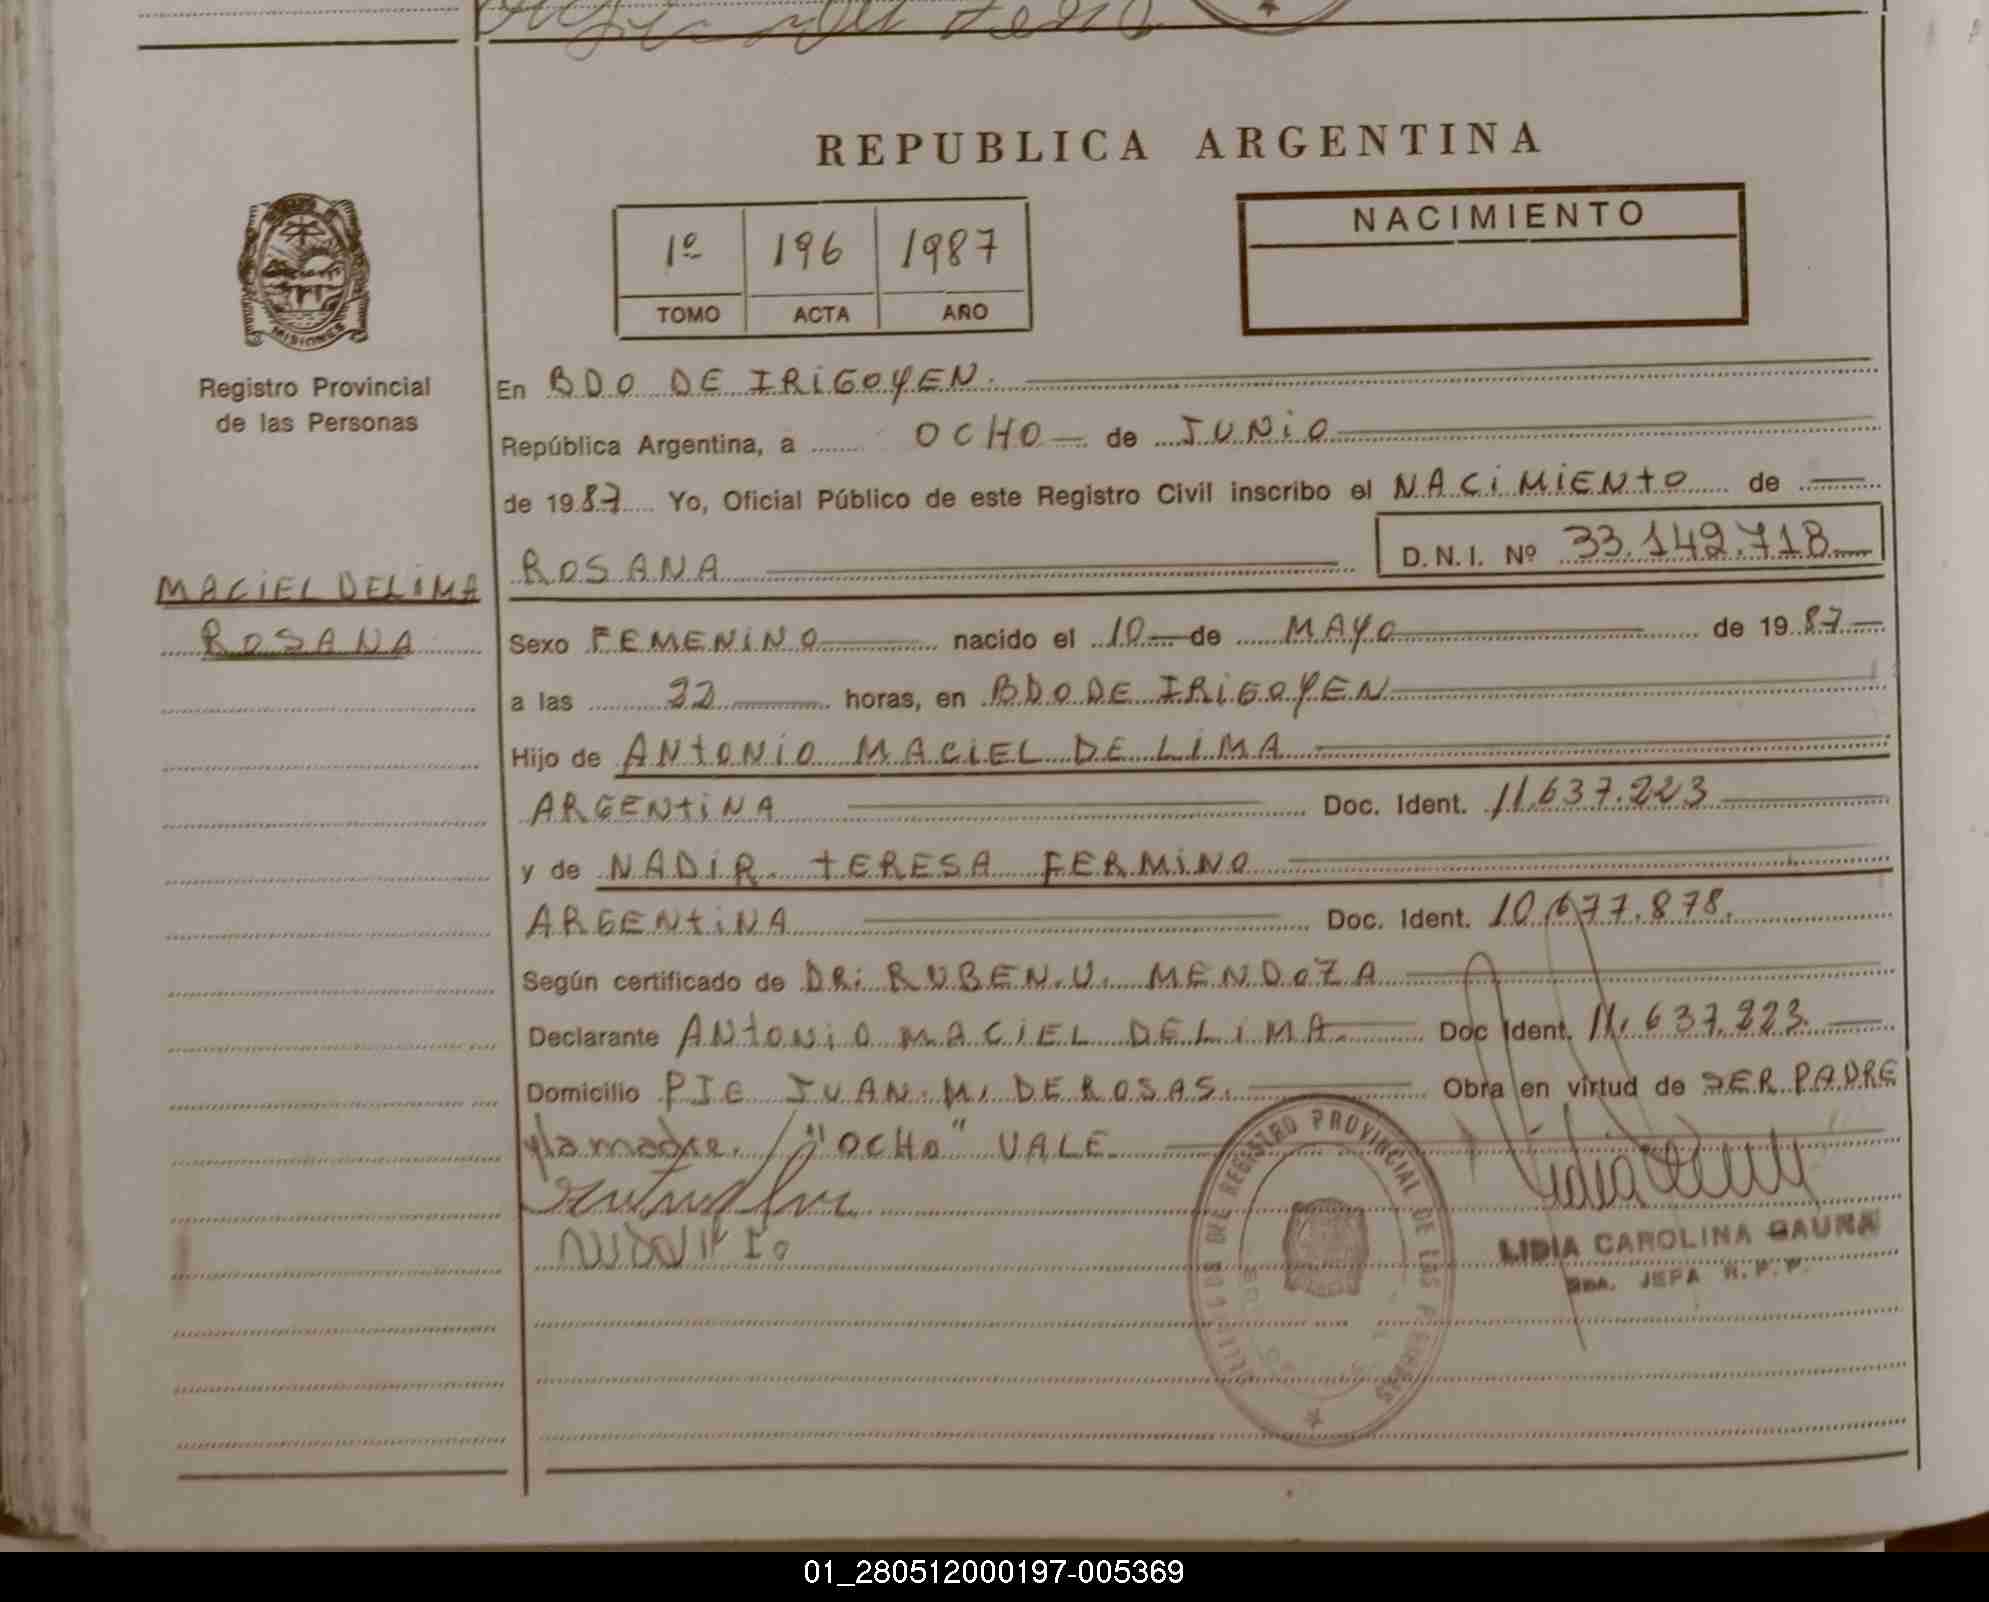 REPUBLICA ARGENTINA
1º 196 1987
TOMO ACTA AÑO
NACIMIENTO
MISIONES
Registro Provincial
de las Personas
MACIEL DELIMA
ROSANA
En BDO DE IRIGOYEN.
República Argentina, a OCHO de JUNIO
de 1987 Yo, Oficial Público de este Registro Civil inscribo el NACIMIENTO de
ROSANA D.N.I. Nº 33.149.718
Sexo FEMENINO nacido el 10 de MAYO de 1987
a las 22 horas, en BDO DE IRIGOYEN
Hijo de ANTONIO MACIEL DE LIMA
ARGENTINA Doc. Ident. 11.637.223
y de NADIR TERESA FERMINO
ARGENTINA Doc. Ident. 10.677.878.
Según certificado de DR. RUBEN.U. MENDOZA
Declarante ANTONIO MACIEL DE LIMA. Doc Ident. 11.637.223.
Domicilio PJE JUAN.M. DE ROSAS. Obra en virtud de SER PADRE
y la madre. / "OCHO" VALE
REGISTRO PROVINCIAL DE LAS PERSONAS
LIDIA CAROLINA GAUNA
JEFA R.P.P.
01_280512000197-005369